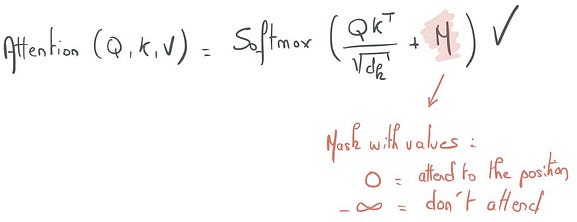 Attention (Q, K, V) = Softmax (QK^T / √dk + M) V
Mask with values :
0 = attend to the position
-∞ = don't attend